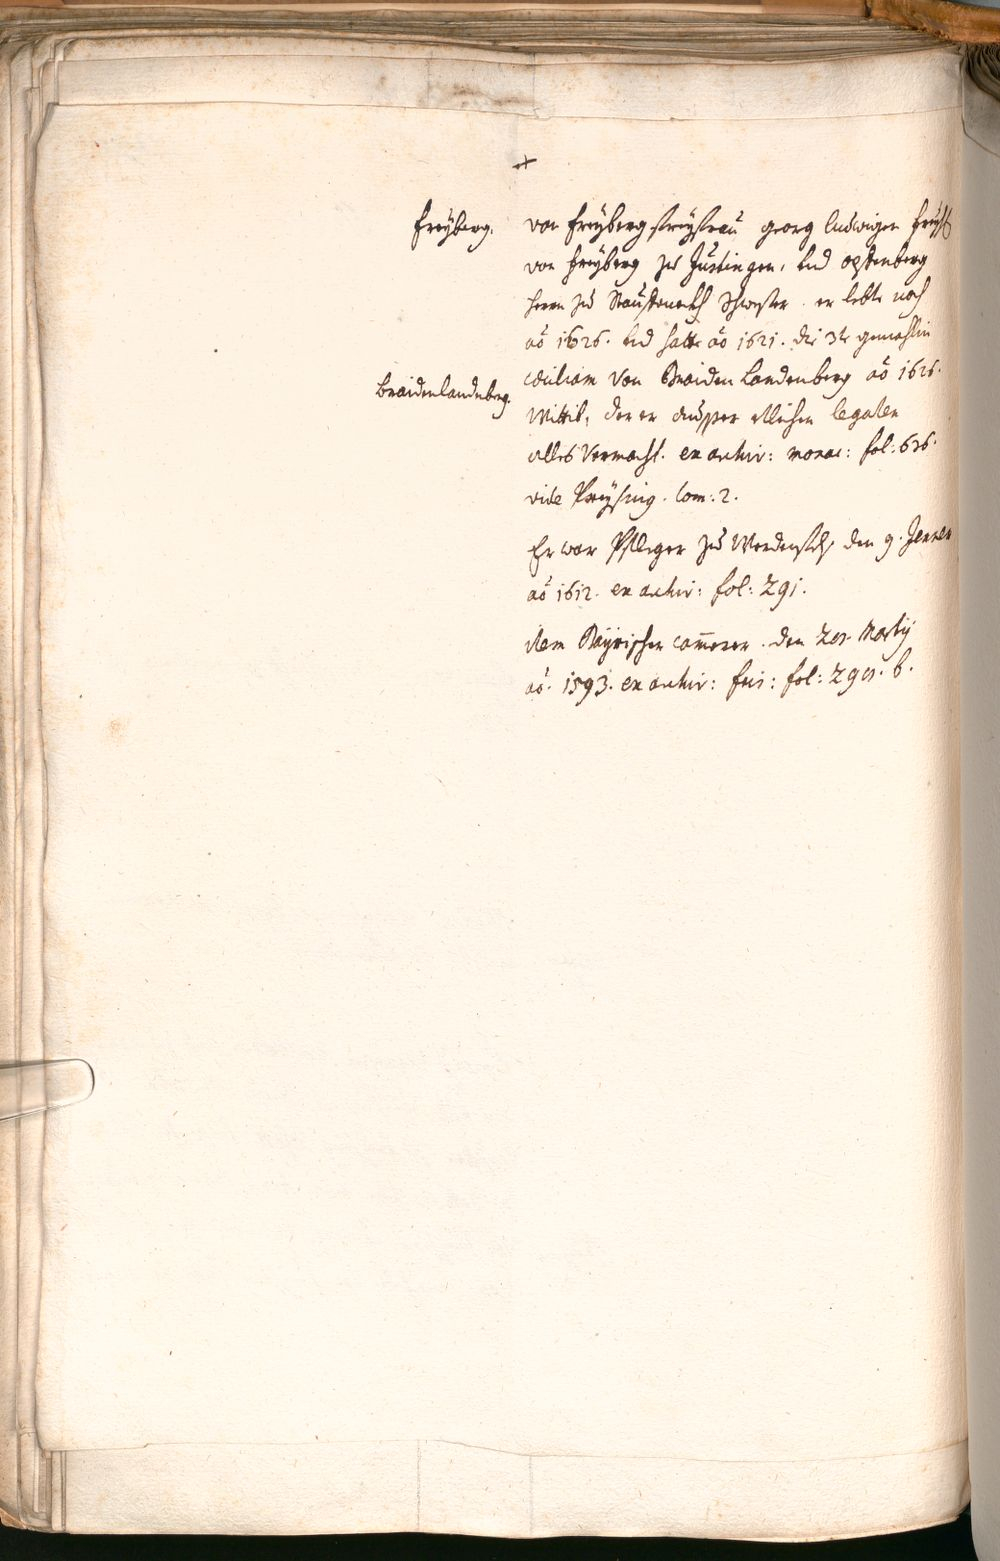 +
Freyberg. von Freyberg freyfrau georg ludwigen freyh
von Freyberg zu Justingen, und Öpffenberg
herrn zu schwester. er lebte noch
aō 1626. und hatte aō 1621. die 3te gemahlin
Braidenlandenberg. Caeciliam von Braiden Landenberg aō 1626.
Wittib, der er ausser etlichen legaten
alles vermacht. ex archiv: monac: fol: 636.
vide Preysing. tom: 2.
Er war Pfleger zu den 9. Jenner
aō 1612. ex archiv: fol: 291.
item Bayrischer camerer. den Martij
aō. 1593. ex archiv: fol: b.